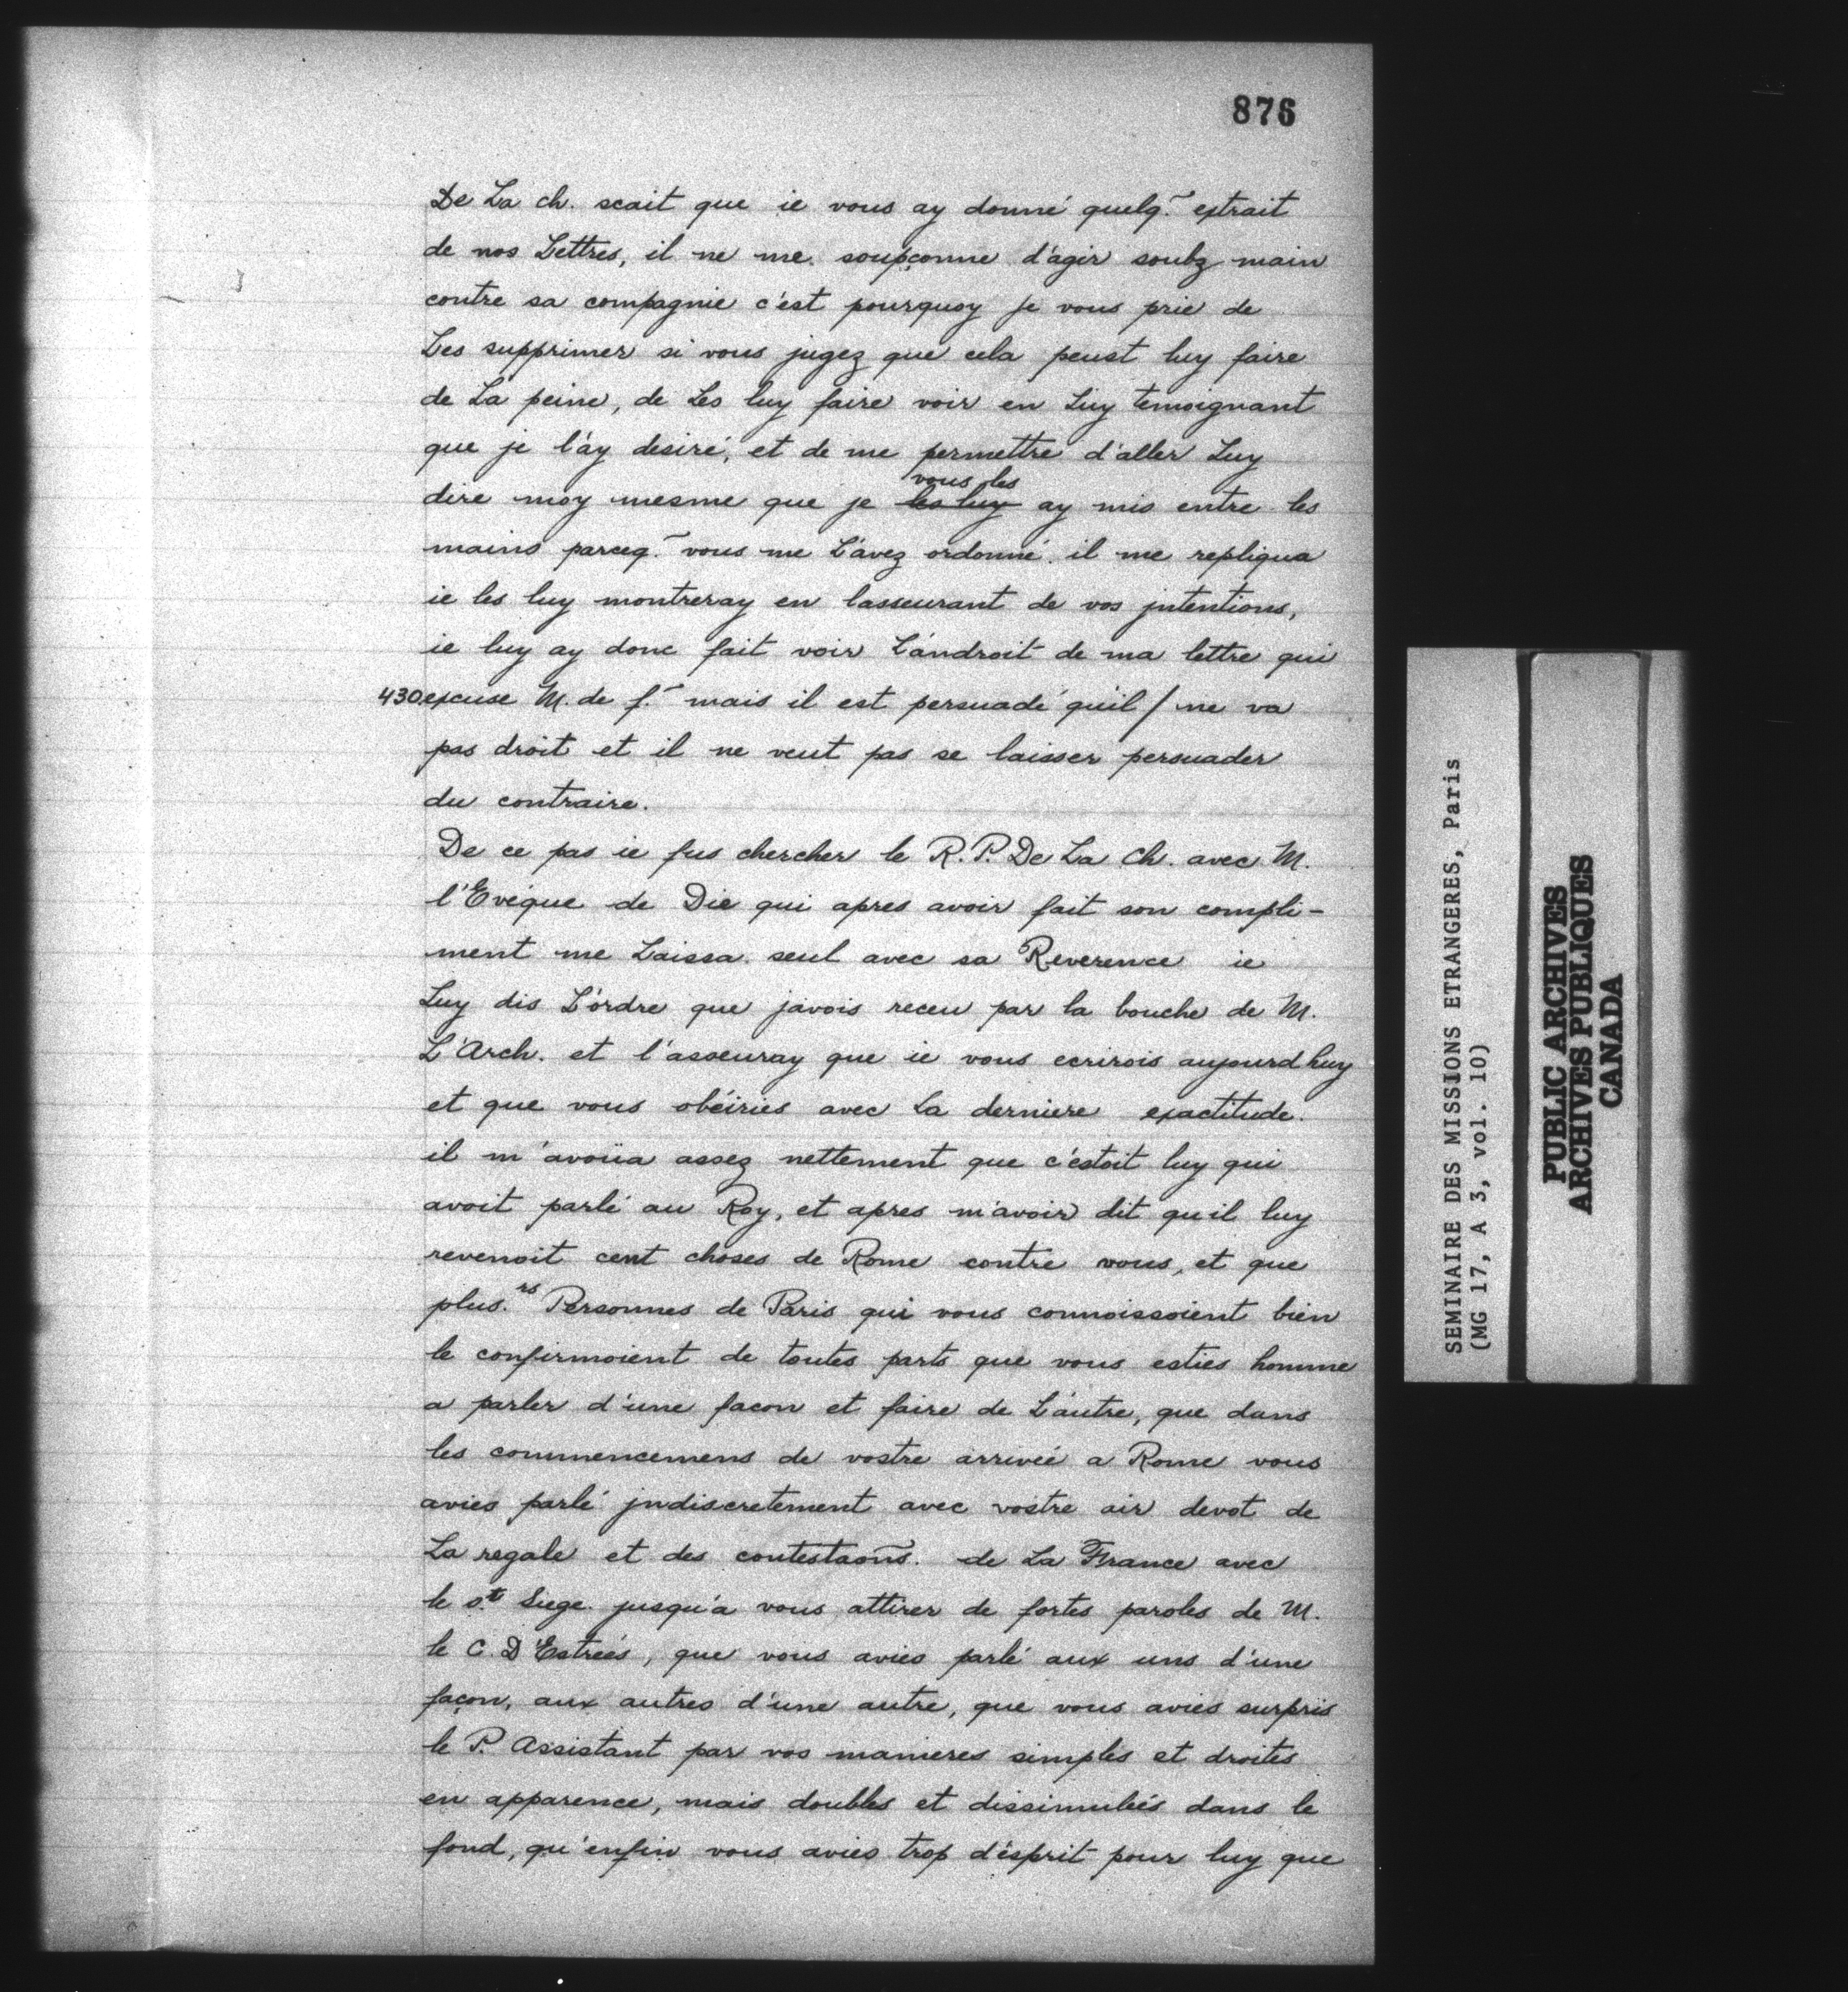 876
De La ch. scait que ie vous ay donné quelq.~ extrait
de nos Lettres, il ne me soupçonne d'agir soubz main
contre sa compagnie c'est pourquoy je vous prie de
Les supprimer si vous jugez que cela peust luy faire
de La peine, de Les luy faire voir en Luy temoignant
que je l'ay desiré, et de me permettre d'aller Luy
vous les
dire moy mesme que je les luy ay mis entre les
mains parceq.~ vous me L'avez ordonné. il me repliqua
ie les luy montreray en lasseurant de vos jntentions,
ie luy ay donc fait voir L'androit de ma lettre qui
430 excuse M. de f.~ mais il est persuadé qu'il / ne va
pas droit et il ne veut pas se laisser persuader
du contraire.
De ce pas ie fus chercher le R. P. De La Ch. avec M.
l'Evéque de Die qui apres avoir fait son compli-
ment me Laissa seul avec sa Reverence ie
Luy dis L'ordre que javois receu par la bouche de M.
L'Arch. et l'asseuray que ie vous ecrirois aujourdhuy
et que vous obéiries avec La derniere exactitude.
il m'avoüa assez nettement que c'éstoit luy qui
avoit parlé au Roy, et apres m'avoir dit quil luy
revenoit cent choses de Rome contre vous, et que
plus.rs Personnes de Paris qui vous connoissoient bien
le confirmoient de toutes parts que vous esties homme
a parler d'une facon et faire de L'autre, que dans
les commencemens de vostre arrivée a Rome vous
avies parlé jndiscretement avec vostre air devot de
La regale et des contestaons~. de La France avec
le s.t Siege jusqu'a vous attirer de fortes paroles de M.
le C. D'Estreés, que vous avies parlé aux uns d'une
façon, aux autres d'une autre, que vous avies surpris
le P. Assistant par vos manieres simples et droites
en apparence, mais doubles et dissimuleés dans le
fond, qu'enfin vous avies trop d'ésprit pour luy que
SEMINAIRE DES MISSIONS ETRANGERES, Paris
(MG 17, A 3, vol. 10)
PUBLIC ARCHIVES
ARCHIVES PUBLIQUES
CANADA